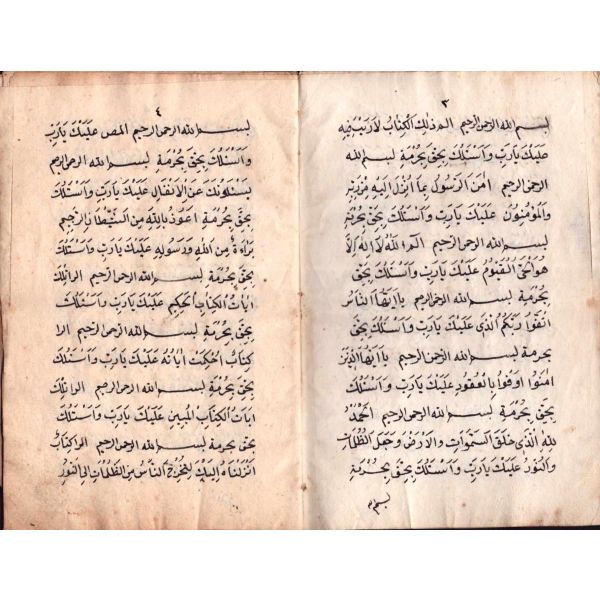 ٣
بسم الله الرحمن الرحيم الم ذلك الكتاب لا ريب فيه
عليك يارب واسئلك بحق بحرمة بسم الله
الرحمن الرحيم امن الرسول بما انزل اليه من ربه
والمؤمنون عليك يارب واسئلك بحق بحرمة
بسم الله الرحمن الرحيم الم الله لا اله الا
هو الحى القيوم عليك يارب واسئلك بحق
بحرمة بسم الله الرحمن الرحيم يا ايها الناس
اتقوا ربكم الذى عليك يارب واسئلك بحق
بحرمة بسم الله الرحمن الرحيم يا ايها الذين
امنوا اوفوا بالعقود عليك يارب واسئلك
بحق بحرمة بسم الله الرحمن الرحيم الحمد
لله الذى خلق السموات والارض وجعل الظلمات
والنور عليك يارب واسئلك بحق بحرمة
بسم
٤
بسم الله الرحمن الرحيم المص عليك يارب
واسئلك بحق بحرمة بسم الله الرحمن الرحيم
يسئلونك عن الانفال عليك يارب واسئلك
بحق بحرمة اعوذ بالله من الشيطان الرجيم
براءة من الله ورسوله عليك يارب واسئلك
بحق بحرمة بسم الله الرحمن الرحيم الر تلك
ايات الكتاب الحكيم عليك يارب واسئلك
بحق بحرمة بسم الله الرحمن الرحيم الر
كتاب احكمت اياته عليك يارب واسئلك
بحق بحرمة بسم الله الرحمن الرحيم الر تلك
ايات الكتاب المبين عليك يارب واسئلك
بحق بحرمة بسم الله الرحمن الرحيم الر كتاب
انزلناه اليك لتخرج الناس من الظلمات الى النور